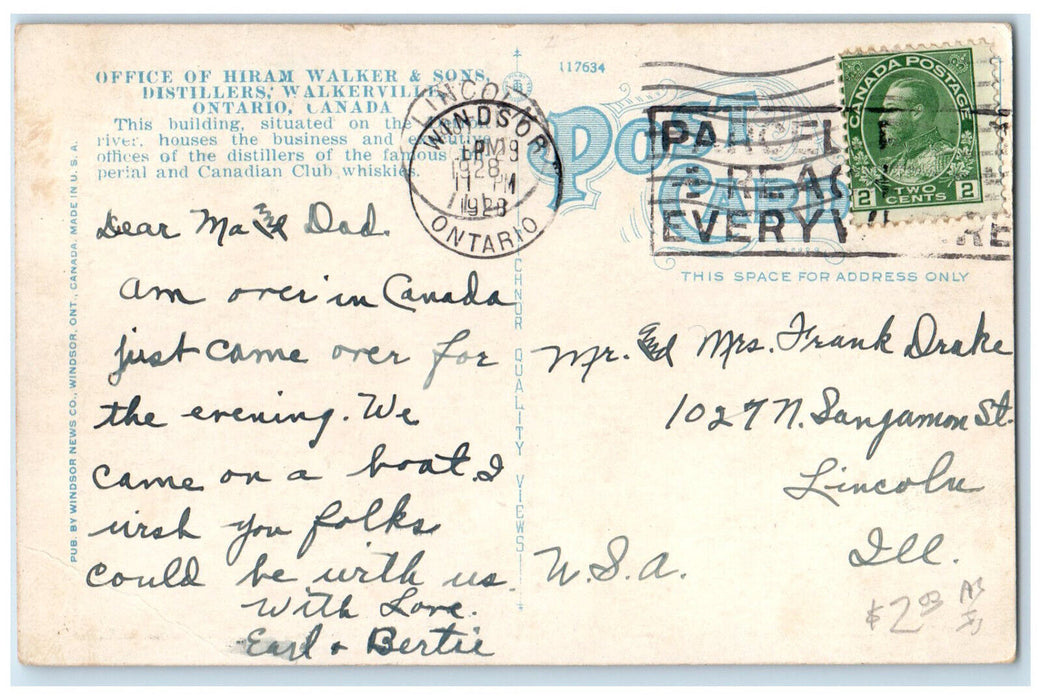 OFFICE OF HIRAM WALKER & SONS,
DISTILLERS, WALKERVILLE,
ONTARIO, CANADA
This building, situated on the
river, houses the business and executive
offices of the distillers of the famous Im-
perial and Canadian Club whiskies.
Dear Ma & Dad.
Am over in Canada
just came over for
the evening. We
came on a boat. I
wish you folks
could be with us.
With Love.
Earl & Bertie
PUB. BY WINDSOR NEWS CO., WINDSOR, ONT., CANADA. MADE IN U.S.A.
QUALITY VIEWS
117634
POST
CARD
LINCOLN
WINDSOR
PM
1928
11 PM
1928
ONTARIO
PARCEL
REAC
EVERYW RE
CANADA POSTAGE
2 TWO 2
CENTS
THIS SPACE FOR ADDRESS ONLY
Mr. & Mrs. Frank Drake
1027 N. Sangamon St.
Lincoln
Ill.
U.S.A.
$2.00